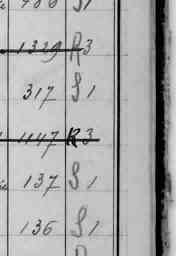 1329 R3
317 S 1
1147 R3
137 S 1
136 S 1